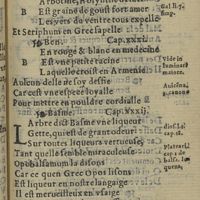 B Est graine de goust fort amer
Les vers du ventre tous expelle
Et Seriphum en Grec s'apelle
Ben. Cap. xxxi.
En rouge & blanc en medecine
B Est vne petite racine
Laquelle croist en Armenie
Aulcun d'elle ne soy deffie
Car c'est vne espece loyalle
Pour mettre en pouldre cordialle
Basme. Cap. xxxij.
Arbre dict Basme vne liqueur
L Gette, qui est de grant odeur
Sur toutes liqueurs vertueuse,
Tant quelle semble miraculeuse
Opobalsamum la disons
Car ce quen Grec Opos lisons
Est liqueur en nostre langaige
Il est merueilleux en vsaige
Vide in
Auicena,